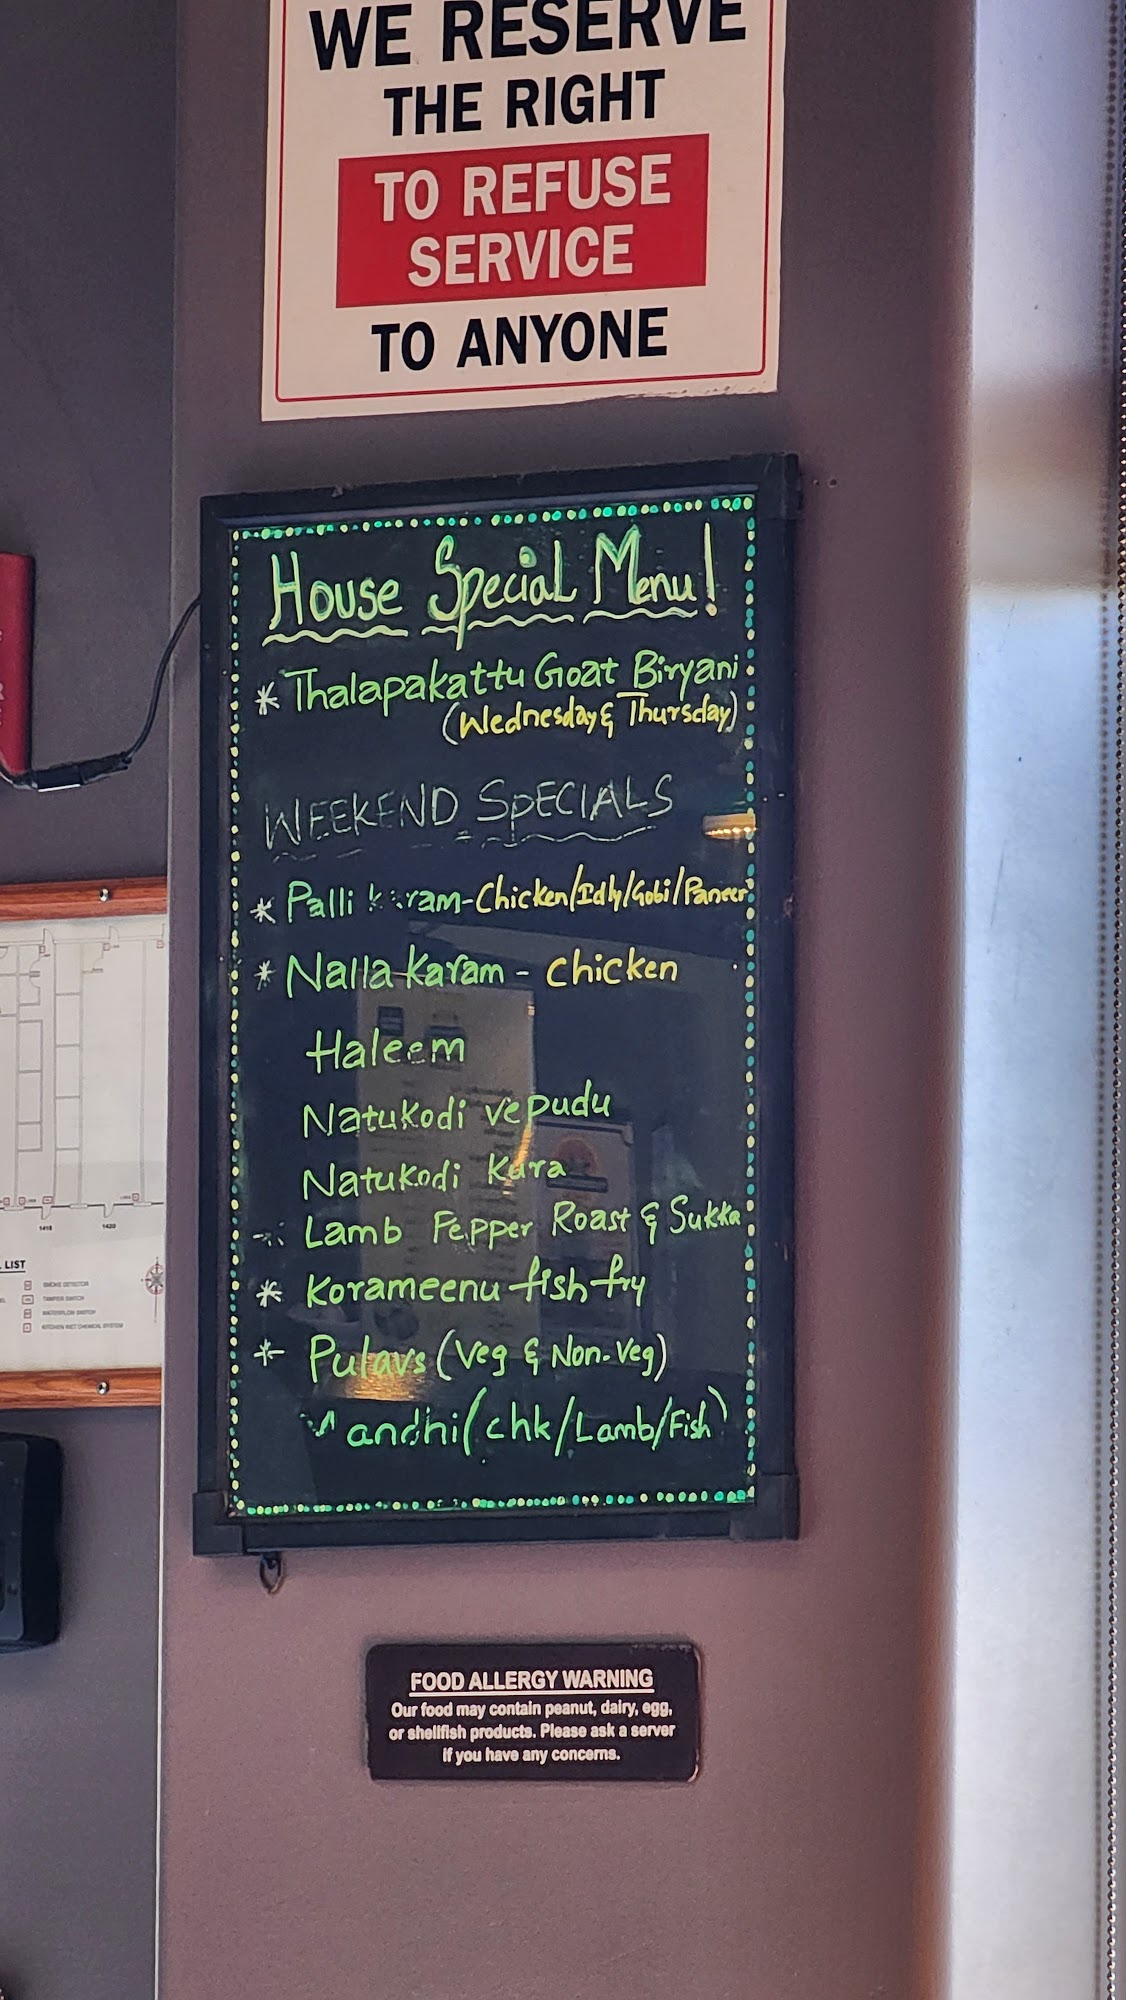 WE RESERVE
THE RIGHT
TO REFUSE
SERVICE
TO ANYONE
House Special Menu!
* Thalapakattu Goat Biryani
(Wednesday & Thursday)
WEEKEND SPECIALS
* Palli karam-Chicken/Idly/Gobi/Paneer
* Nalla Karam - Chicken
Haleem
Natukodi vepudu
Natukodi Kura
Lamb Pepper Roast & Sukka
* Korameenu fish fry
* Pulavs (Veg & Non-Veg)
Mandhi (chk/Lamb/Fish)
LIST
SMOKE DETECTOR
TAMPER SWITCH
WATERFLOW SWITCH
KITCHEN WET CHEMICAL SYSTEM
1418
1420
FOOD ALLERGY WARNING
Our food may contain peanut, dairy, egg,
or shellfish products. Please ask a server
if you have any concerns.